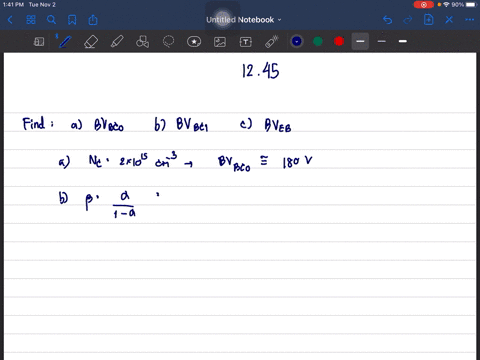 1:41 PM Tue Nov 2
90%
Untitled Notebook
12.45
Find: a) BV_BCO b) BV_BCI c) BV_EB
a) N_C = 2×10^15 cm^-3 → BV_BCO ≅ 180 V
b) β = α / (1-α) =